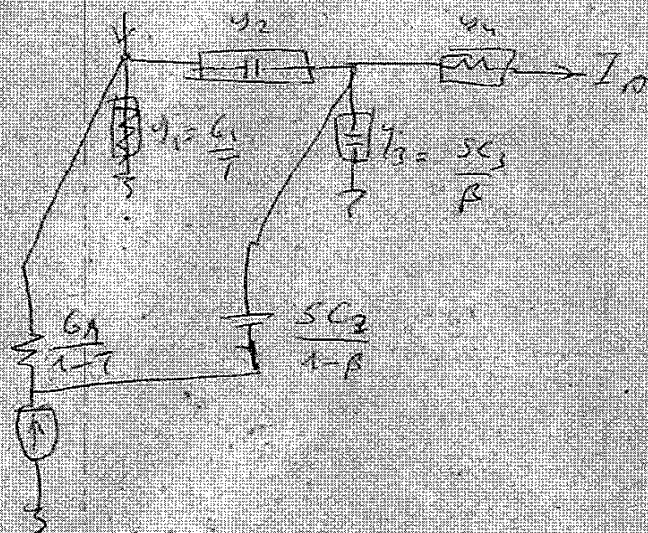 y2
y4
I
y1 = G1/T
y3 = SC3/β
G1/1-T
SC3/1-β